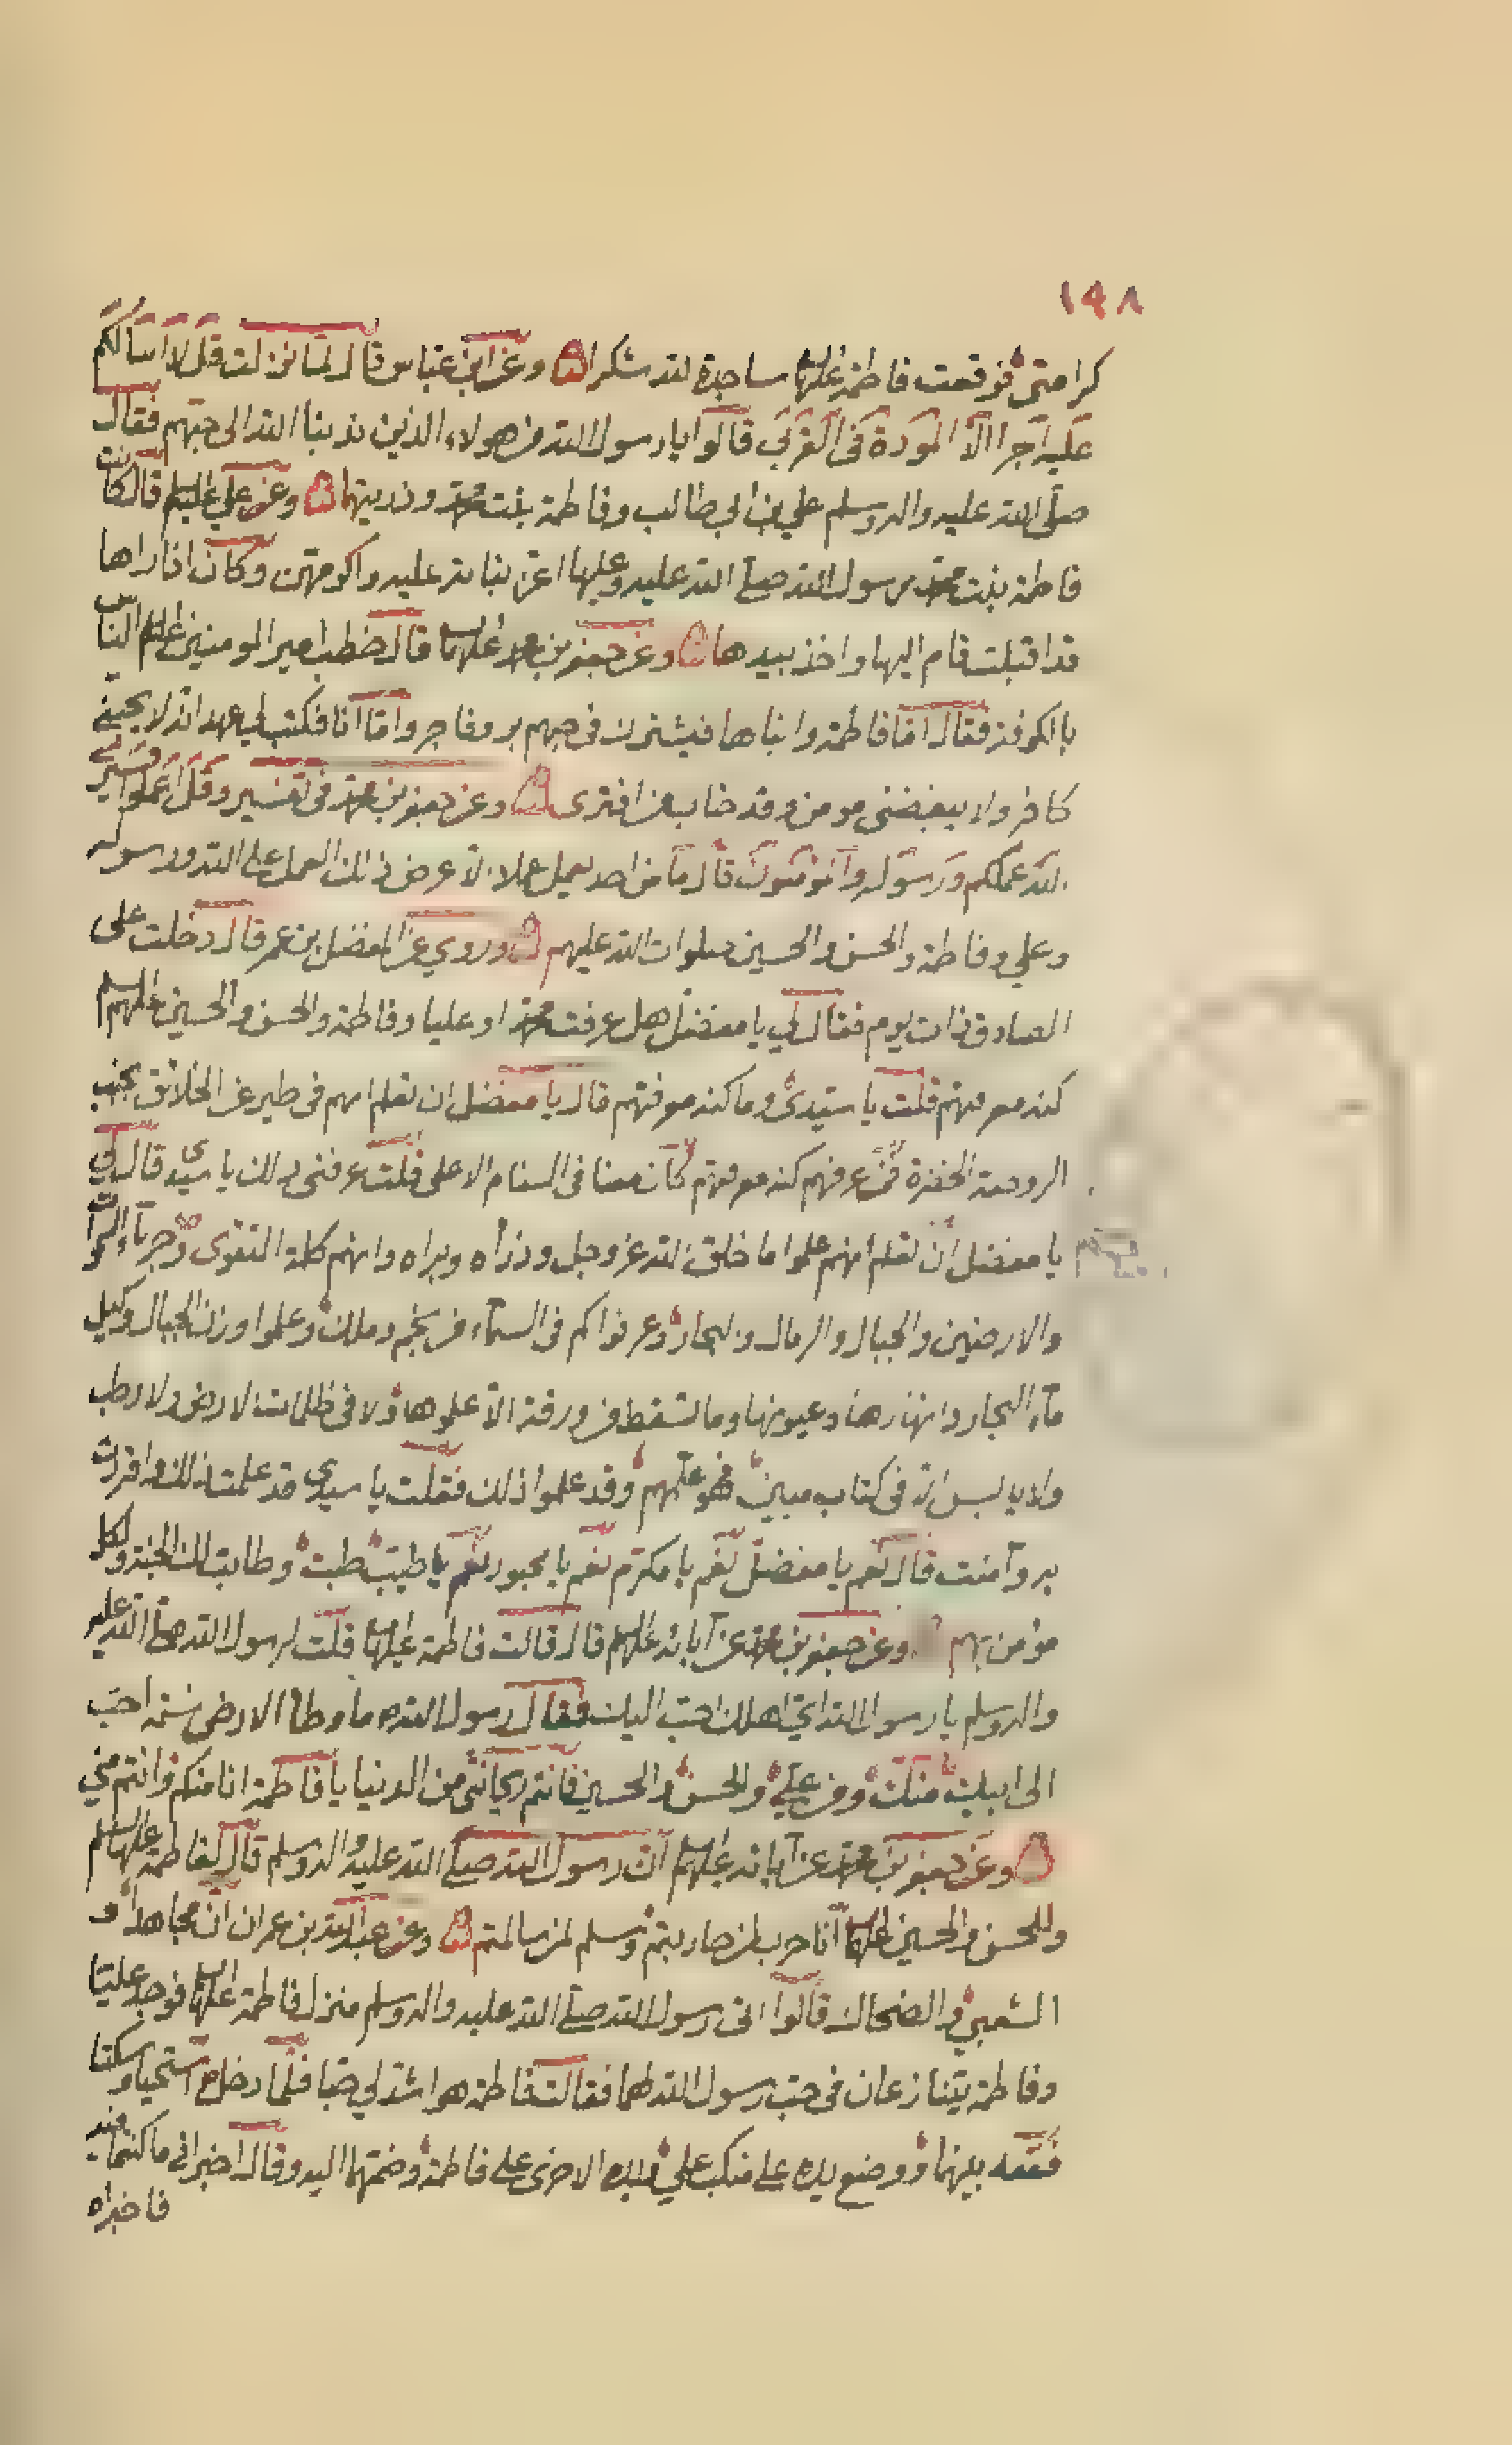 ١٩٨
كرامتى فوقعت فاطمة عليها السلم ساجدة لله شكرا وعن ابن عباس قال لما نزلت قل لا اسالكم
عليه اجرا الا المودة فى القربى قالوا يا رسول الله من هولاء الذين ندبنا الله الى حبهم فقال
صلى الله عليه واله وسلم علي بن ابي طالب وفاطمة بنت محمد وذريتهما وعن علي عليه السلم قال كانت
فاطمة بنت محمد رسول الله صلى الله عليه وعليها اعز بناته عليه واكرمهن وكان اذا راها
قد اقبلت قام اليها واخذ بيدها وعن جعفر بن محمد عليهما السلم قال خطب امير المومنين عليه السلم الناس
بالكوفة فقال اما فاطمة وابناها فيشترك فى حبهم بر وفاجر واما انا فكتب لي عهد انه لا يحبني
كافر ولا يبغضنى مومن وقد خاب من افترى وعن جعفر بن محمد فى تفسير وقل اعملوا فسيرى
الله عملكم ورسوله والمومنون قال ما من احد يعمل عملا الا عرض ذلك العمل على الله ورسوله
وعلي وفاطمة والحسن والحسين صلوات الله عليهم وروي عن المفضل بن عمر قال دخلت على
الصادق ذات يوم فقال لي يا مفضل هل عرفت محمدا وعليا وفاطمة والحسن والحسين عليهم السلم
كنه معرفتهم قلت يا سيدى وما كنه معرفتهم قال يا مفضل ان تعلم انهم فى طير عن الخلائق بجنب
الروضة الخضرة فمن عرفهم كنه معرفتهم كان معنا فى السنام الاعلى قلت عرفنى ذلك يا سيدى قال لي
يا مفضل ان تعلم انهم علموا ما خلق الله عز وجل وذراه وبراه وانهم كلمة التقوى وخزناء السموات
والارضين والجبال والرمال والبحار وعرفوا كم فى السماء من نجم وملك وعلموا وزن الجبال وكيل
ماء البحار وانهارها وعيونها وما تسقط من ورقة الا علموها ولا فى ظلمات الارض ولا رطب
ولا يابس الا فى كتاب مبين فهو علمهم وقد علموا ذلك فقلت يا سيدي قد علمت ذلك واقررت
به وآمنت قال نعم يا مفضل نعم يا مكرم نعم يا محبور نعم يا طيب طبت وطابت لك الجنة ولكل
مؤمن بهم وعن جعفر بن محمد عن آبائه عليهم السلم قال قالت فاطمة عليها السلم قلت لرسول الله صلى الله عليه
واله وسلم يا رسول الله اي اهلك احب اليك فقال رسول الله ما وطأ الارض نسمة احب
الى ابيك منك ومن علي والحسن والحسين فانتم ريحانتى من الدنيا يا فاطمة انا منكم وانتم مني
وعن جعفر بن محمد عن آبائه عليهم السلم ان رسول الله صلى الله عليه واله وسلم قال لفاطمة عليها السلم
وللحسن والحسين عليهما السلم انا حرب لمن حاربتم وسلم لمن سالمتم وعن عبد الله بن عمران ان مجاهدا و
الشعبي والضحاك قالوا اتى رسول الله صلى الله عليه واله وسلم منزل فاطمة عليها السلم فوجد عليا
وفاطمة يتنازعان فى حب رسول الله لهما فقالت فاطمة هو اشد لي حبا فلما دخل استحيا وسكتا
فقعد بينهما ووضع يده على منكب علي ويده الاخرى على فاطمة وضمهما اليه وقال اخبرانى ما كنتما فيه
فاخبراه